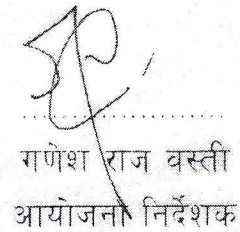 गणेश राज वस्ती
आयोजना निर्देशक